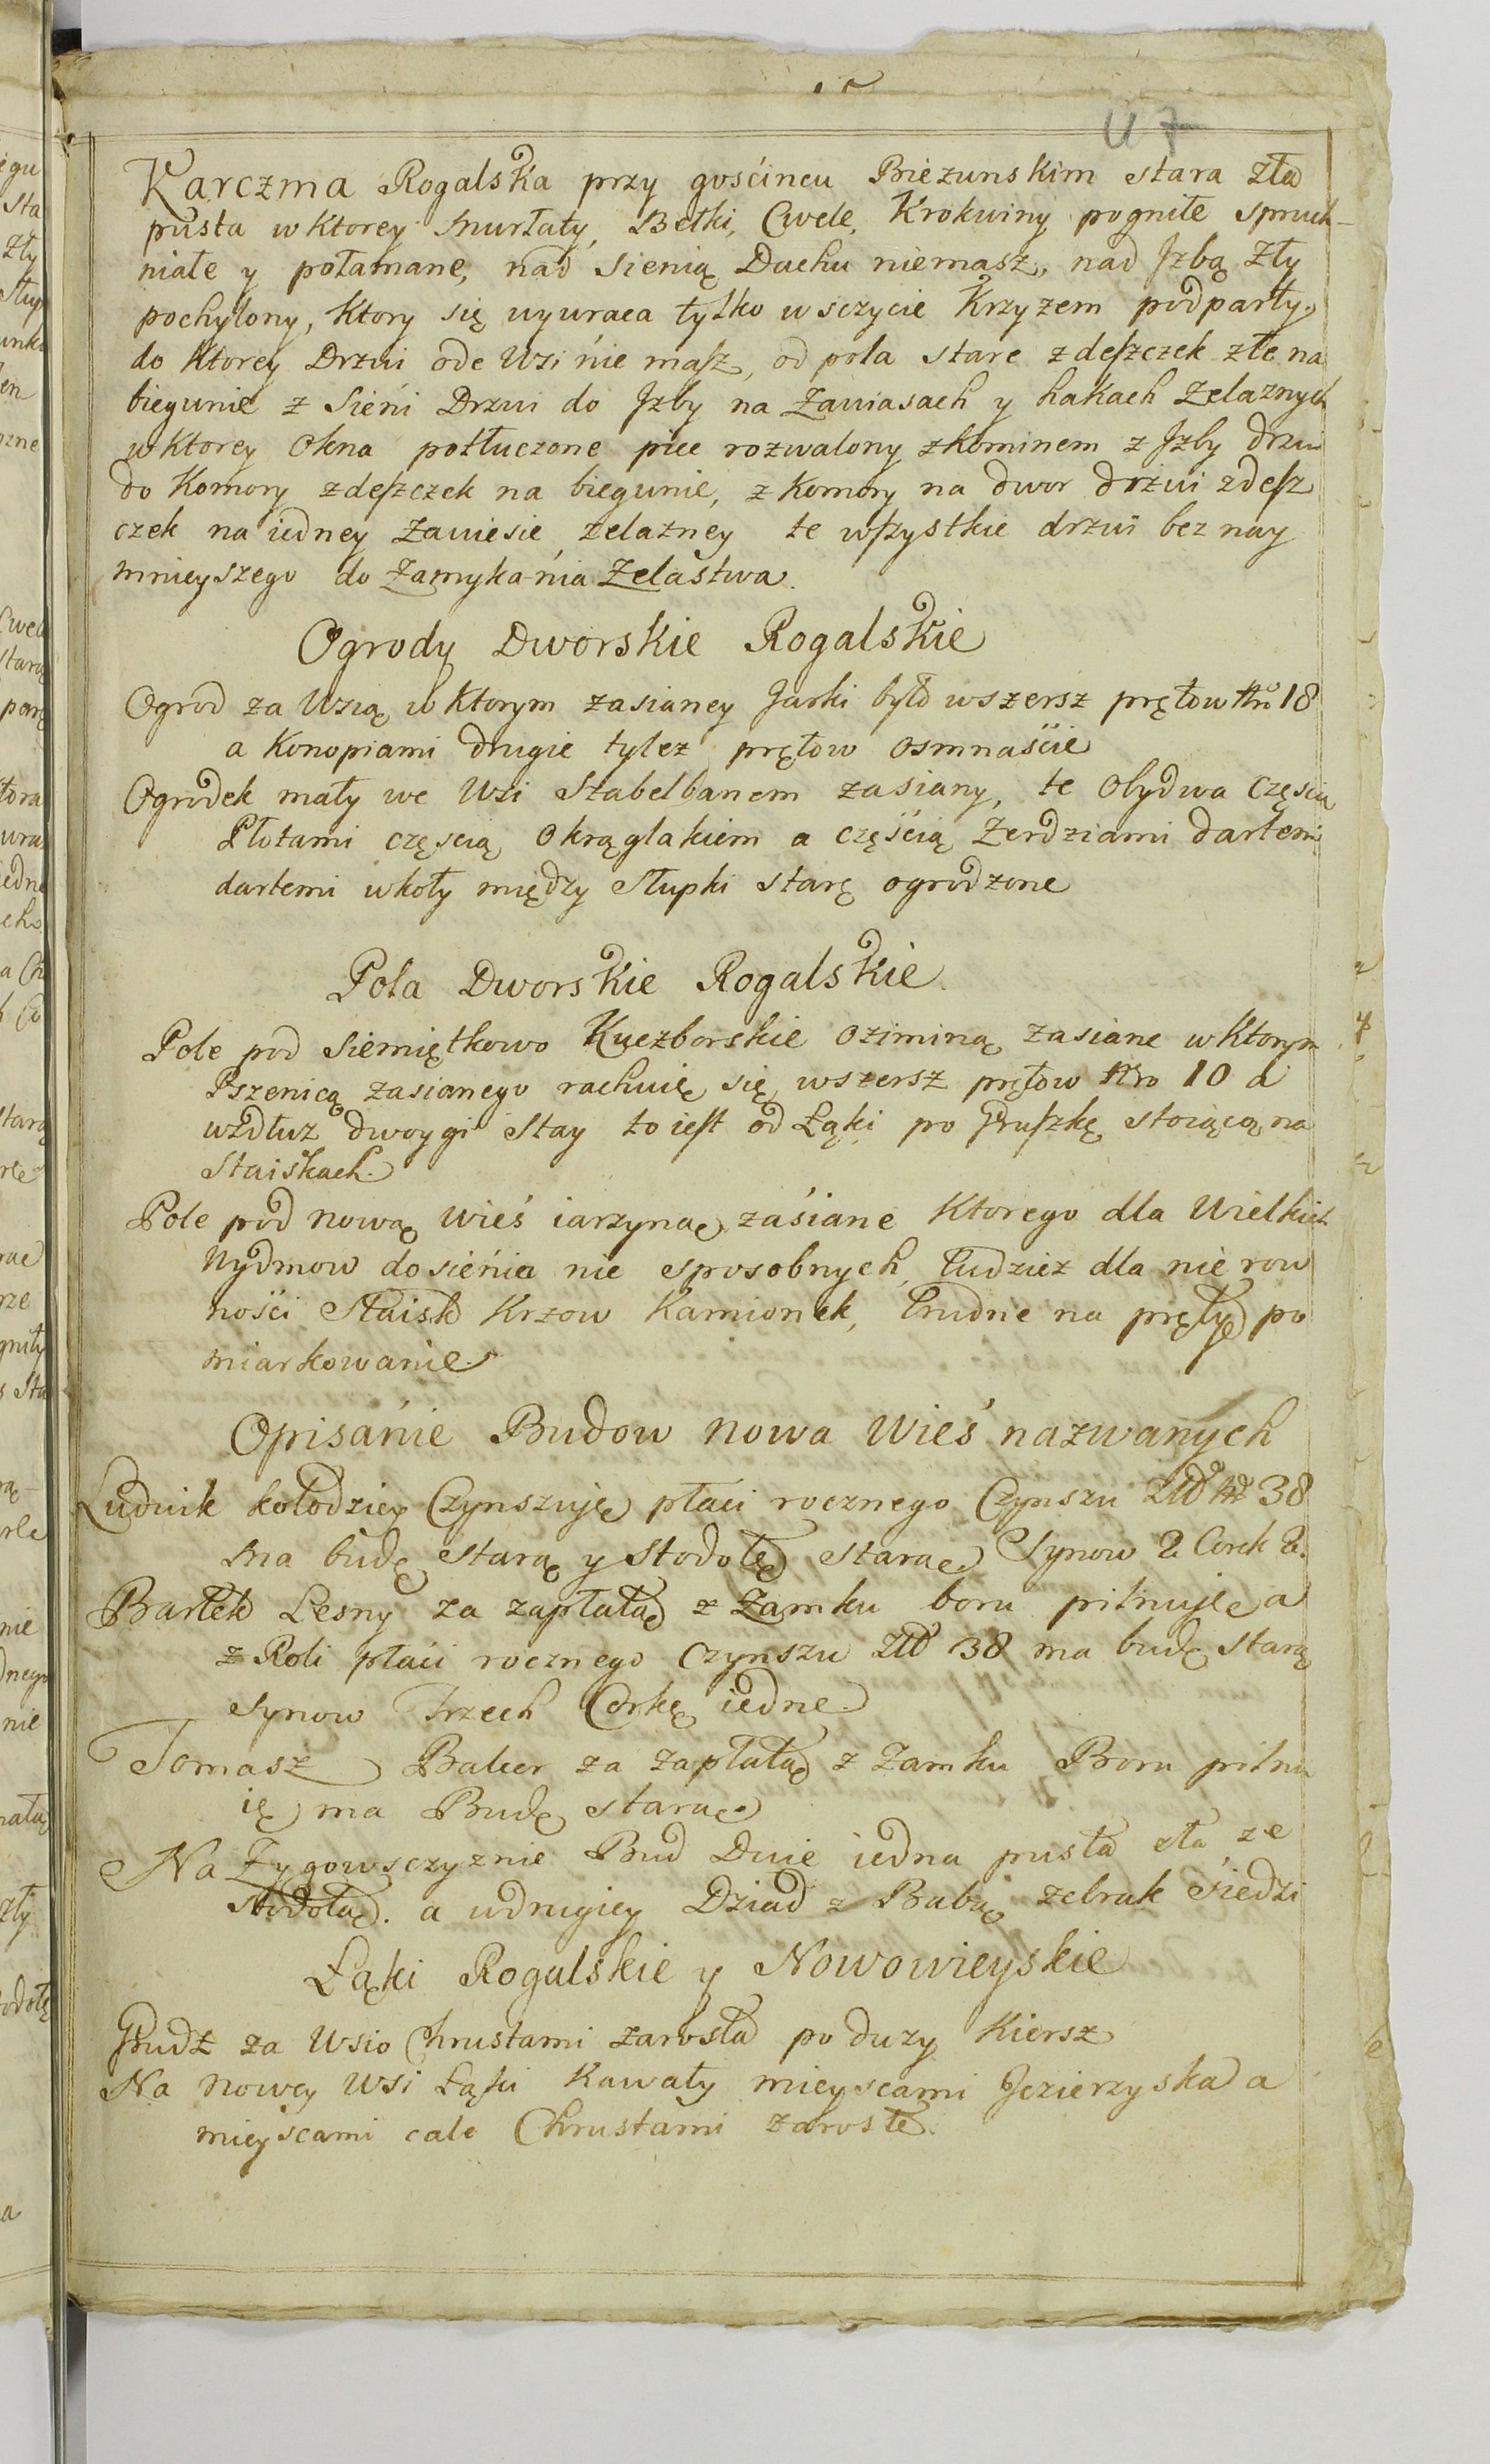 47
Karczma Rogalska przy gościncu Biezunskim stara zła
pusta w ktorey murłaty, Belki, Cwele, Krokwiny pogniłe spruch-
niałe y połamane, nad Sienią Dachu niemasz, nad Jzbą zły
pochylony, Ktory się wywraca tylko w sczycie Krzyzem podparty,
do Ktorey Drzwi ode Wsi nie masz, od pola stare z deszczek złe na
biegunie z Sieni Drzwi do Jzby na Zawiasach y hakach Zelaznych
w Ktorey Okna potłuczone piec rozwalony z kominem z Jzby drzwi
do Komory z deszczek na biegunie, z Komory na dwor drzwi z desz
czek na iedney Zawiesie zelazney te wszystkie drzwi bez nay
mnieyszego do Zamykania Zelastwa.
Ogrody Dworskie Rogalskie
Ogrod za Wsią w Ktorym zasianey Jarki było wszersz prętow Nro 18
a Konopiami drugie tylez prętow osmnaście
Ogrodek mały we Wsi Stabelbanem zasiany, te obydwa Częscią
Płotami częscią okrąglakiem a częścią Zerdziami dartemi
dartemi w koły między Słupki starę ogrodzone
Pola Dworskie Rogalskie
Pole pod Siemiętkowo Kuczborskie oziminą zasiane w Ktorym
Pszenicą zasianego rachuię się wszersz prętow Nro 10 a
wzdłuz dwoygi Stay to iest od Łąki po Gruszkę stoiącą na
Staiskach.
Pole pod nową wieś iarzyną zaśiane Ktorego dla Wielkich
Wydmow do sieńia nie sposobnych, tudziez dla nie row
ności Staisk Krzow Kamionek, trudne na pręty po
miarkowanie.
Opisańie Budow nowa wieś nazwanych
Ludwik kołodziey Czynszuje płaci rocznego Czynszu Złd Nro 38
ma budę starą y stodołę starą. Synow 2 Corek 2.
Bartek Lesny za zapłatą z Zamku boru pilnuje a
z Roli płaći rocznego Czynszu Złd 38 ma budę starą
Synow Trzech Corkę iednę.
Tomasz Balcer za zapłatą z Zamku Boru pilnu
ię ma Budę starą.
Na Zygowsczyznie Bud Dwie iedna pusta zła, ze
stodołą. a w drugiey Dziad z Babą zebrak siedzi
Łąki Rogalskie y Nowowieyskie
Grudź za Wsio Chrustami zarosła po duzy Kiersz
Na nowey Wsi Łąki Kawały mieyscami Jezierzyska a
mieyscami cale Chrustami zarosłe.